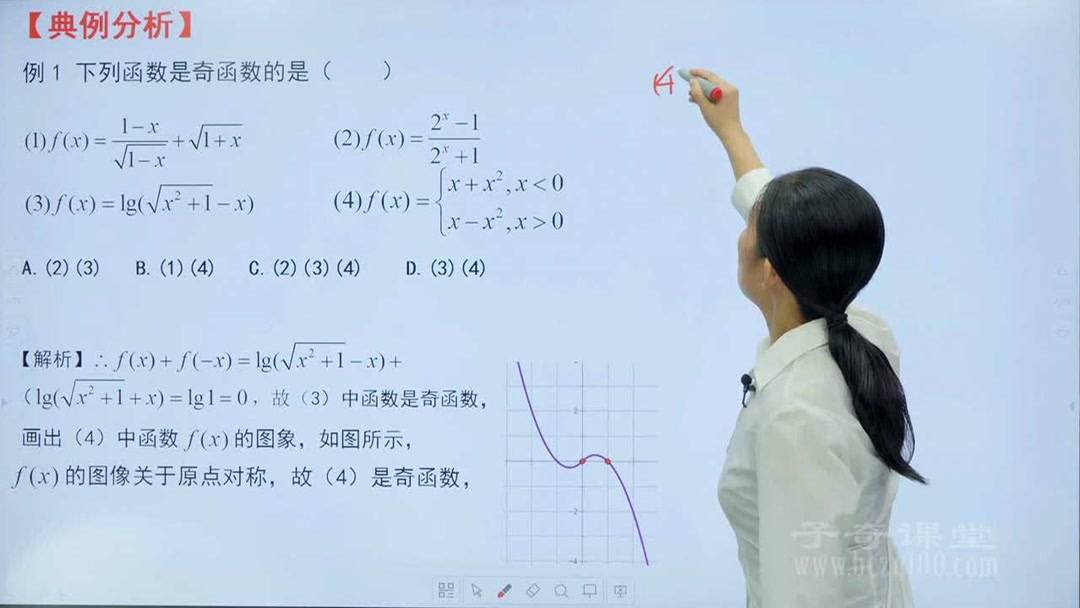 【典例分析】
例1 下列函数是奇函数的是（ ）
(1)f(x)=\frac{1-x}{\sqrt{1-x}}+\sqrt{1+x} (2)f(x)=\frac{2^x-1}{2^x+1}
(3)f(x)=lg(\sqrt{x^2+1}-x) (4)f(x)=\begin{cases}x+x^2,x<0\\x-x^2,x>0\end{cases}
A.(2)(3) B.(1)(4) C.(2)(3)(4) D.(3)(4)
【解析】∴f(x)+f(-x)=lg(\sqrt{x^2+1}-x)+
（lg(\sqrt{x^2+1}+x)=lg1=0，故（3）中函数是奇函数，
画出（4）中函数f(x)的图象，如图所示，
f(x)的图像关于原点对称，故（4）是奇函数，
2
-2
-4
子奇课堂